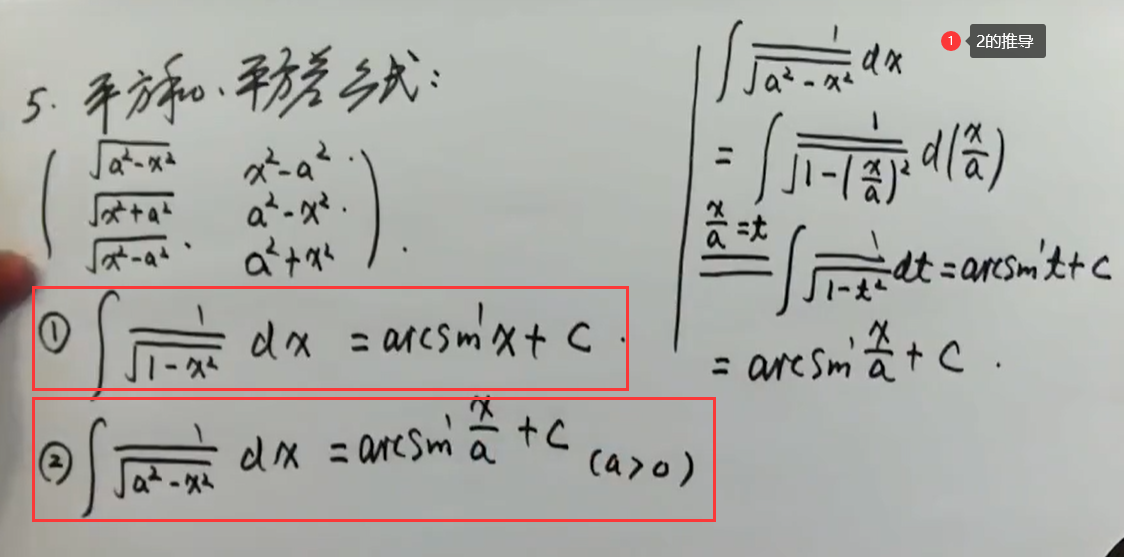 5. 平方和、平方差公式:
√(a²-x²) x²-a².
√(x²+a²) a²-x².
√(x²-a²). a²+x².
① ∫ 1/√(1-x²) dx = arcsin x + C.
② ∫ 1/√(a²-x²) dx = arcsin x/a + C (a>0)
1 2的推导
∫ 1/√(a²-x²) dx
= ∫ 1/√(1-(x/a)²) d(x/a)
x/a=t ∫ 1/√(1-t²) dt = arcsin t + C
= arcsin x/a + C.